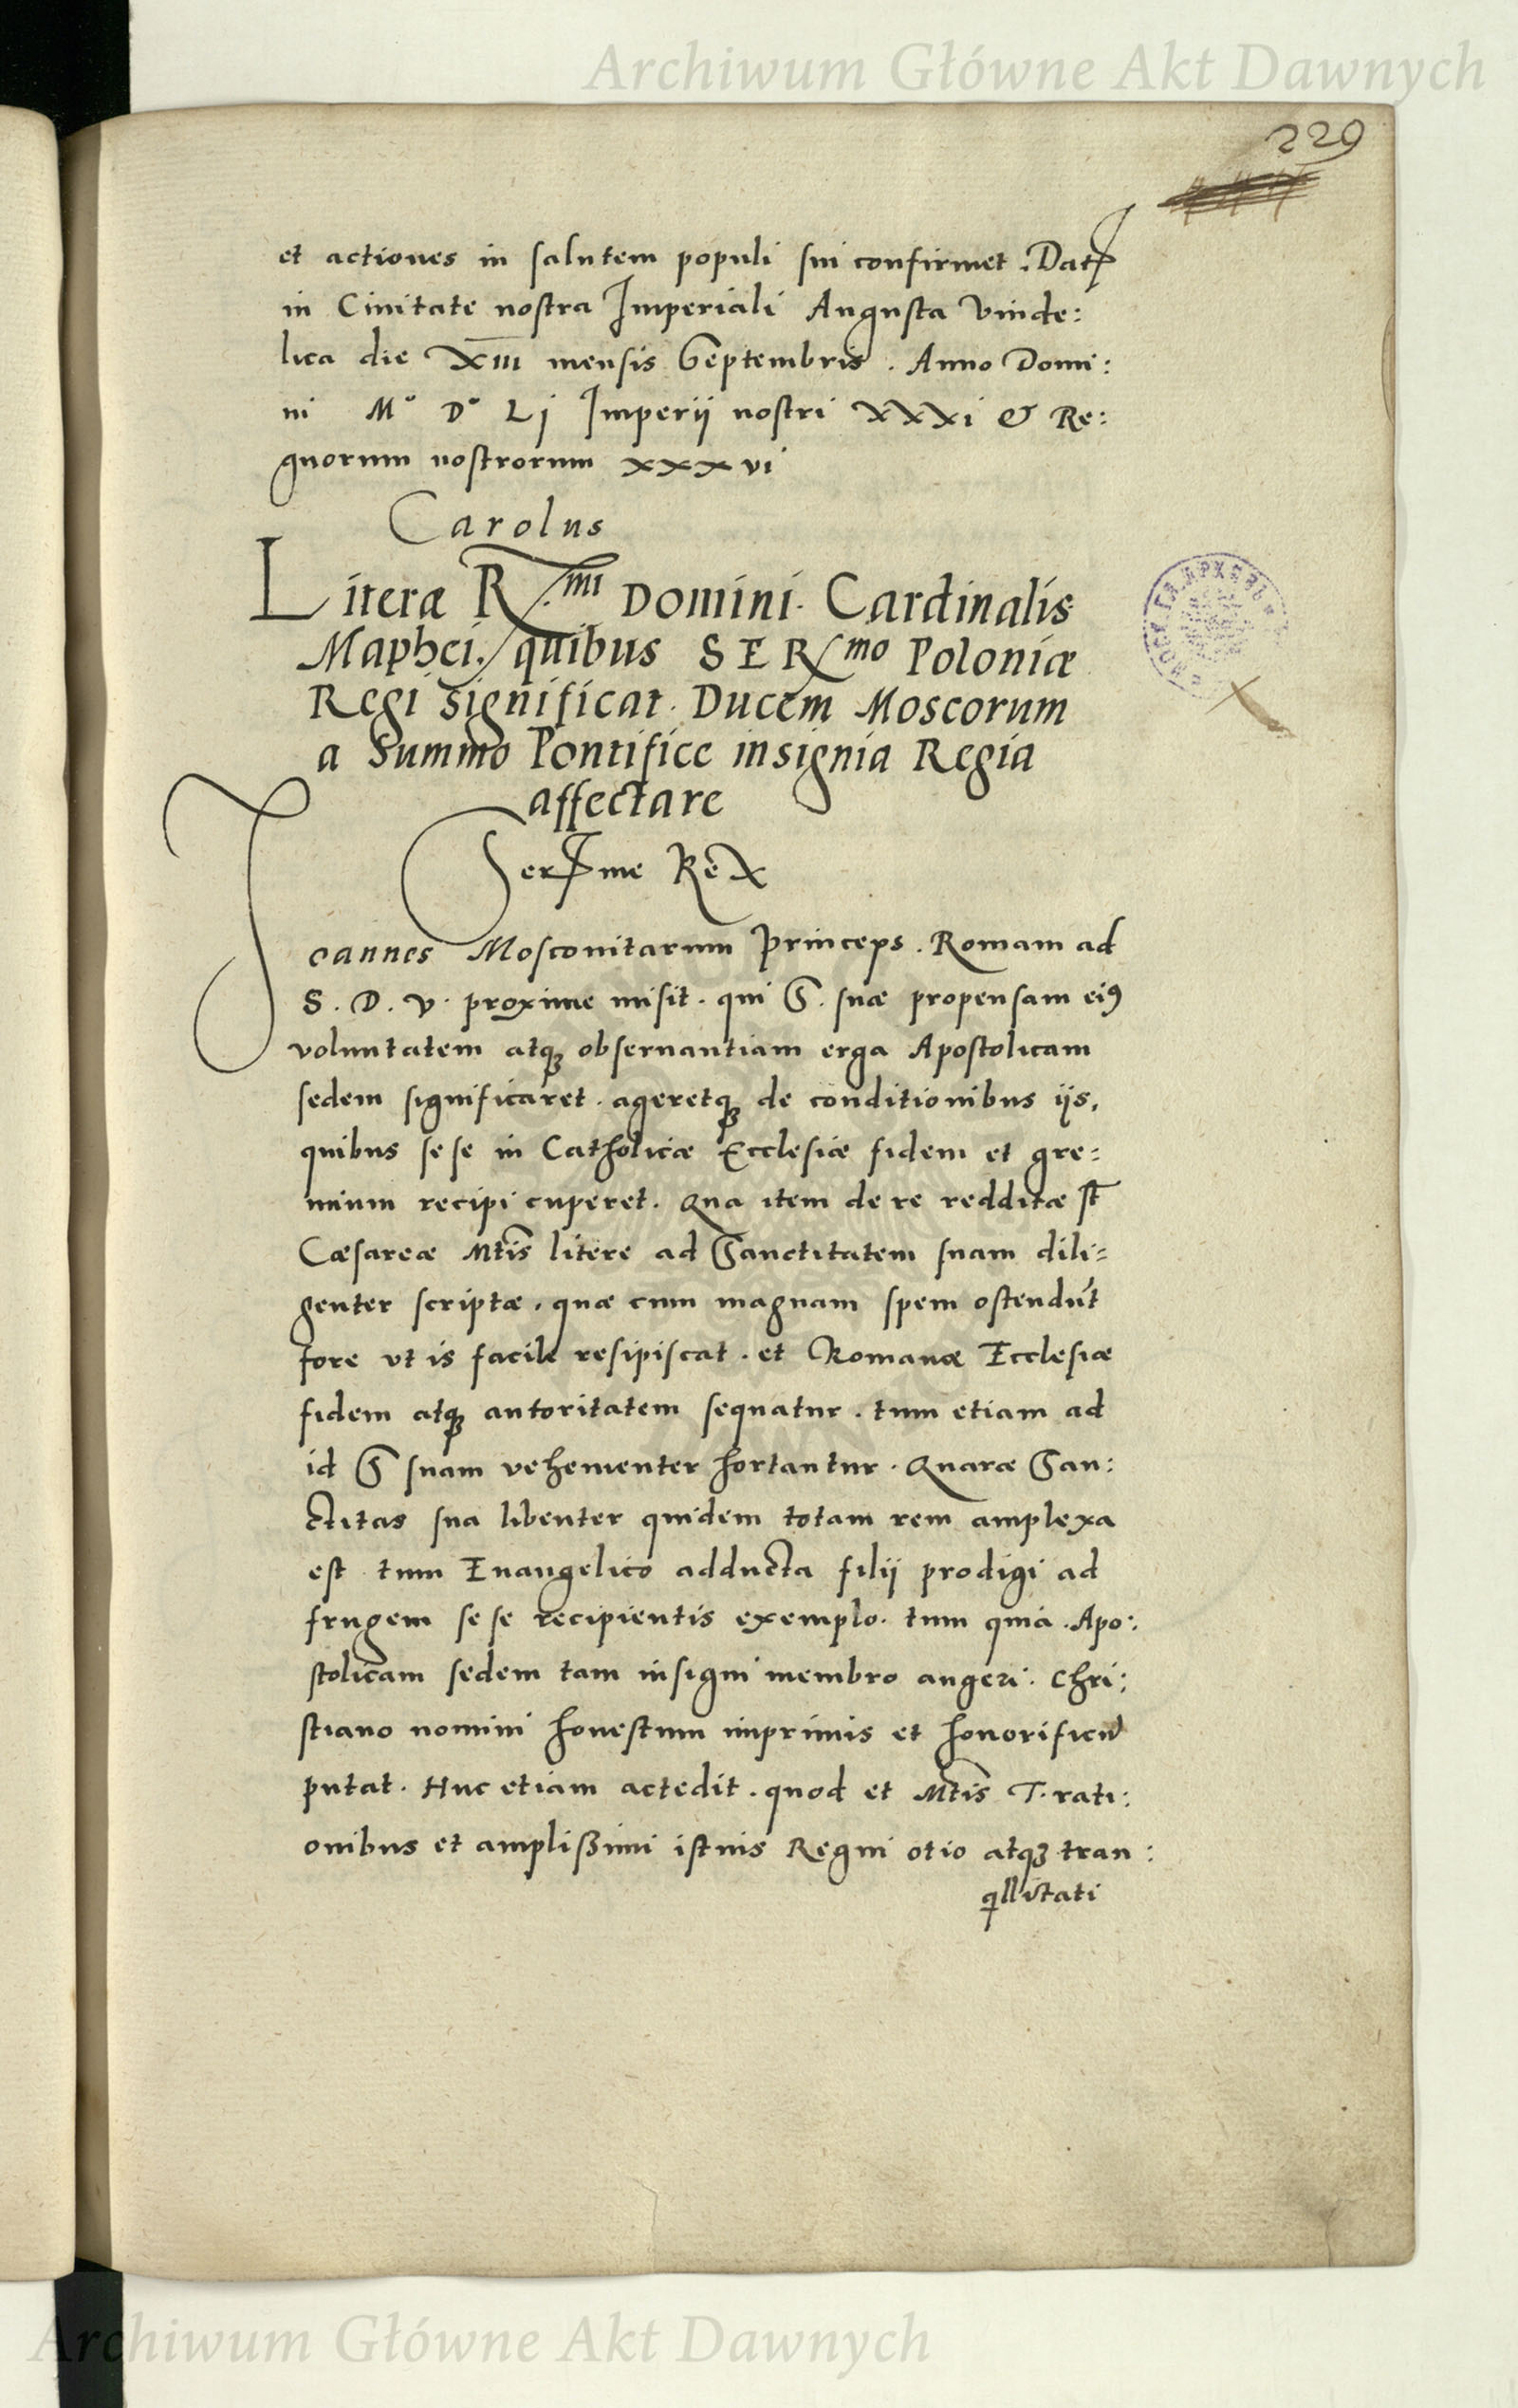 Archiwum Główne Akt Dawnych
229
et actiones in salutem populi sui confirmet. Dat
in Ciuitate nostra Imperiali Augusta Vinde:
lica die XIII mensis Septembris. Anno Domi:
ni M° D° Lj Imperij nostri XXXi & Re:
gnorum nostrorum xxxvi
Carolus
Literæ R.mi Domini Cardinalis
Maphei, quibus SERmo Poloniæ
Regi significat Ducem Moscorum
a Summo Pontifice insignia Regia
affectare
Serme Rex
Joannes Mosconitarum Princeps. Romam ad
S. D. V. proxime misit. qui S. suæ propensam eiꝰ
voluntatem atqꝫ obseruantiam erga Apostolicam
sedem significaret. ageretqꝫ de conditionibus ijs,
quibus sese in Catholicæ Ecclesiæ fidem et gre=
mium recipi cuperet. Qua item de re redditæ st
Cæsareæ Mtis litere ad Sanctitatem suam dili=
genter scriptæ. quæ cum magnam spem ostendūt
fore vt is facile resipiscat. et Romanæ Ecclesiæ
fidem atqꝫ autoritatem sequatur. tum etiam ad
id S suam vehementer hortantur. Quaræ San:
ctitas sua libenter quidem totam rem amplexa
est tum Euangelico adducta filij prodigi ad
frugem sese recipientis exemplo. tum quia. Apo:
stolicam sedem tam insigni membro augeri. Chri:
stiano nomini honestum imprimis et honorificū
putat. Huc etiam actedit. quod et Mtis T. rati:
onibus et amplißimi istius Regni otio atqꝫ tran:
qllitati
Archiwum Główne Akt Dawnych